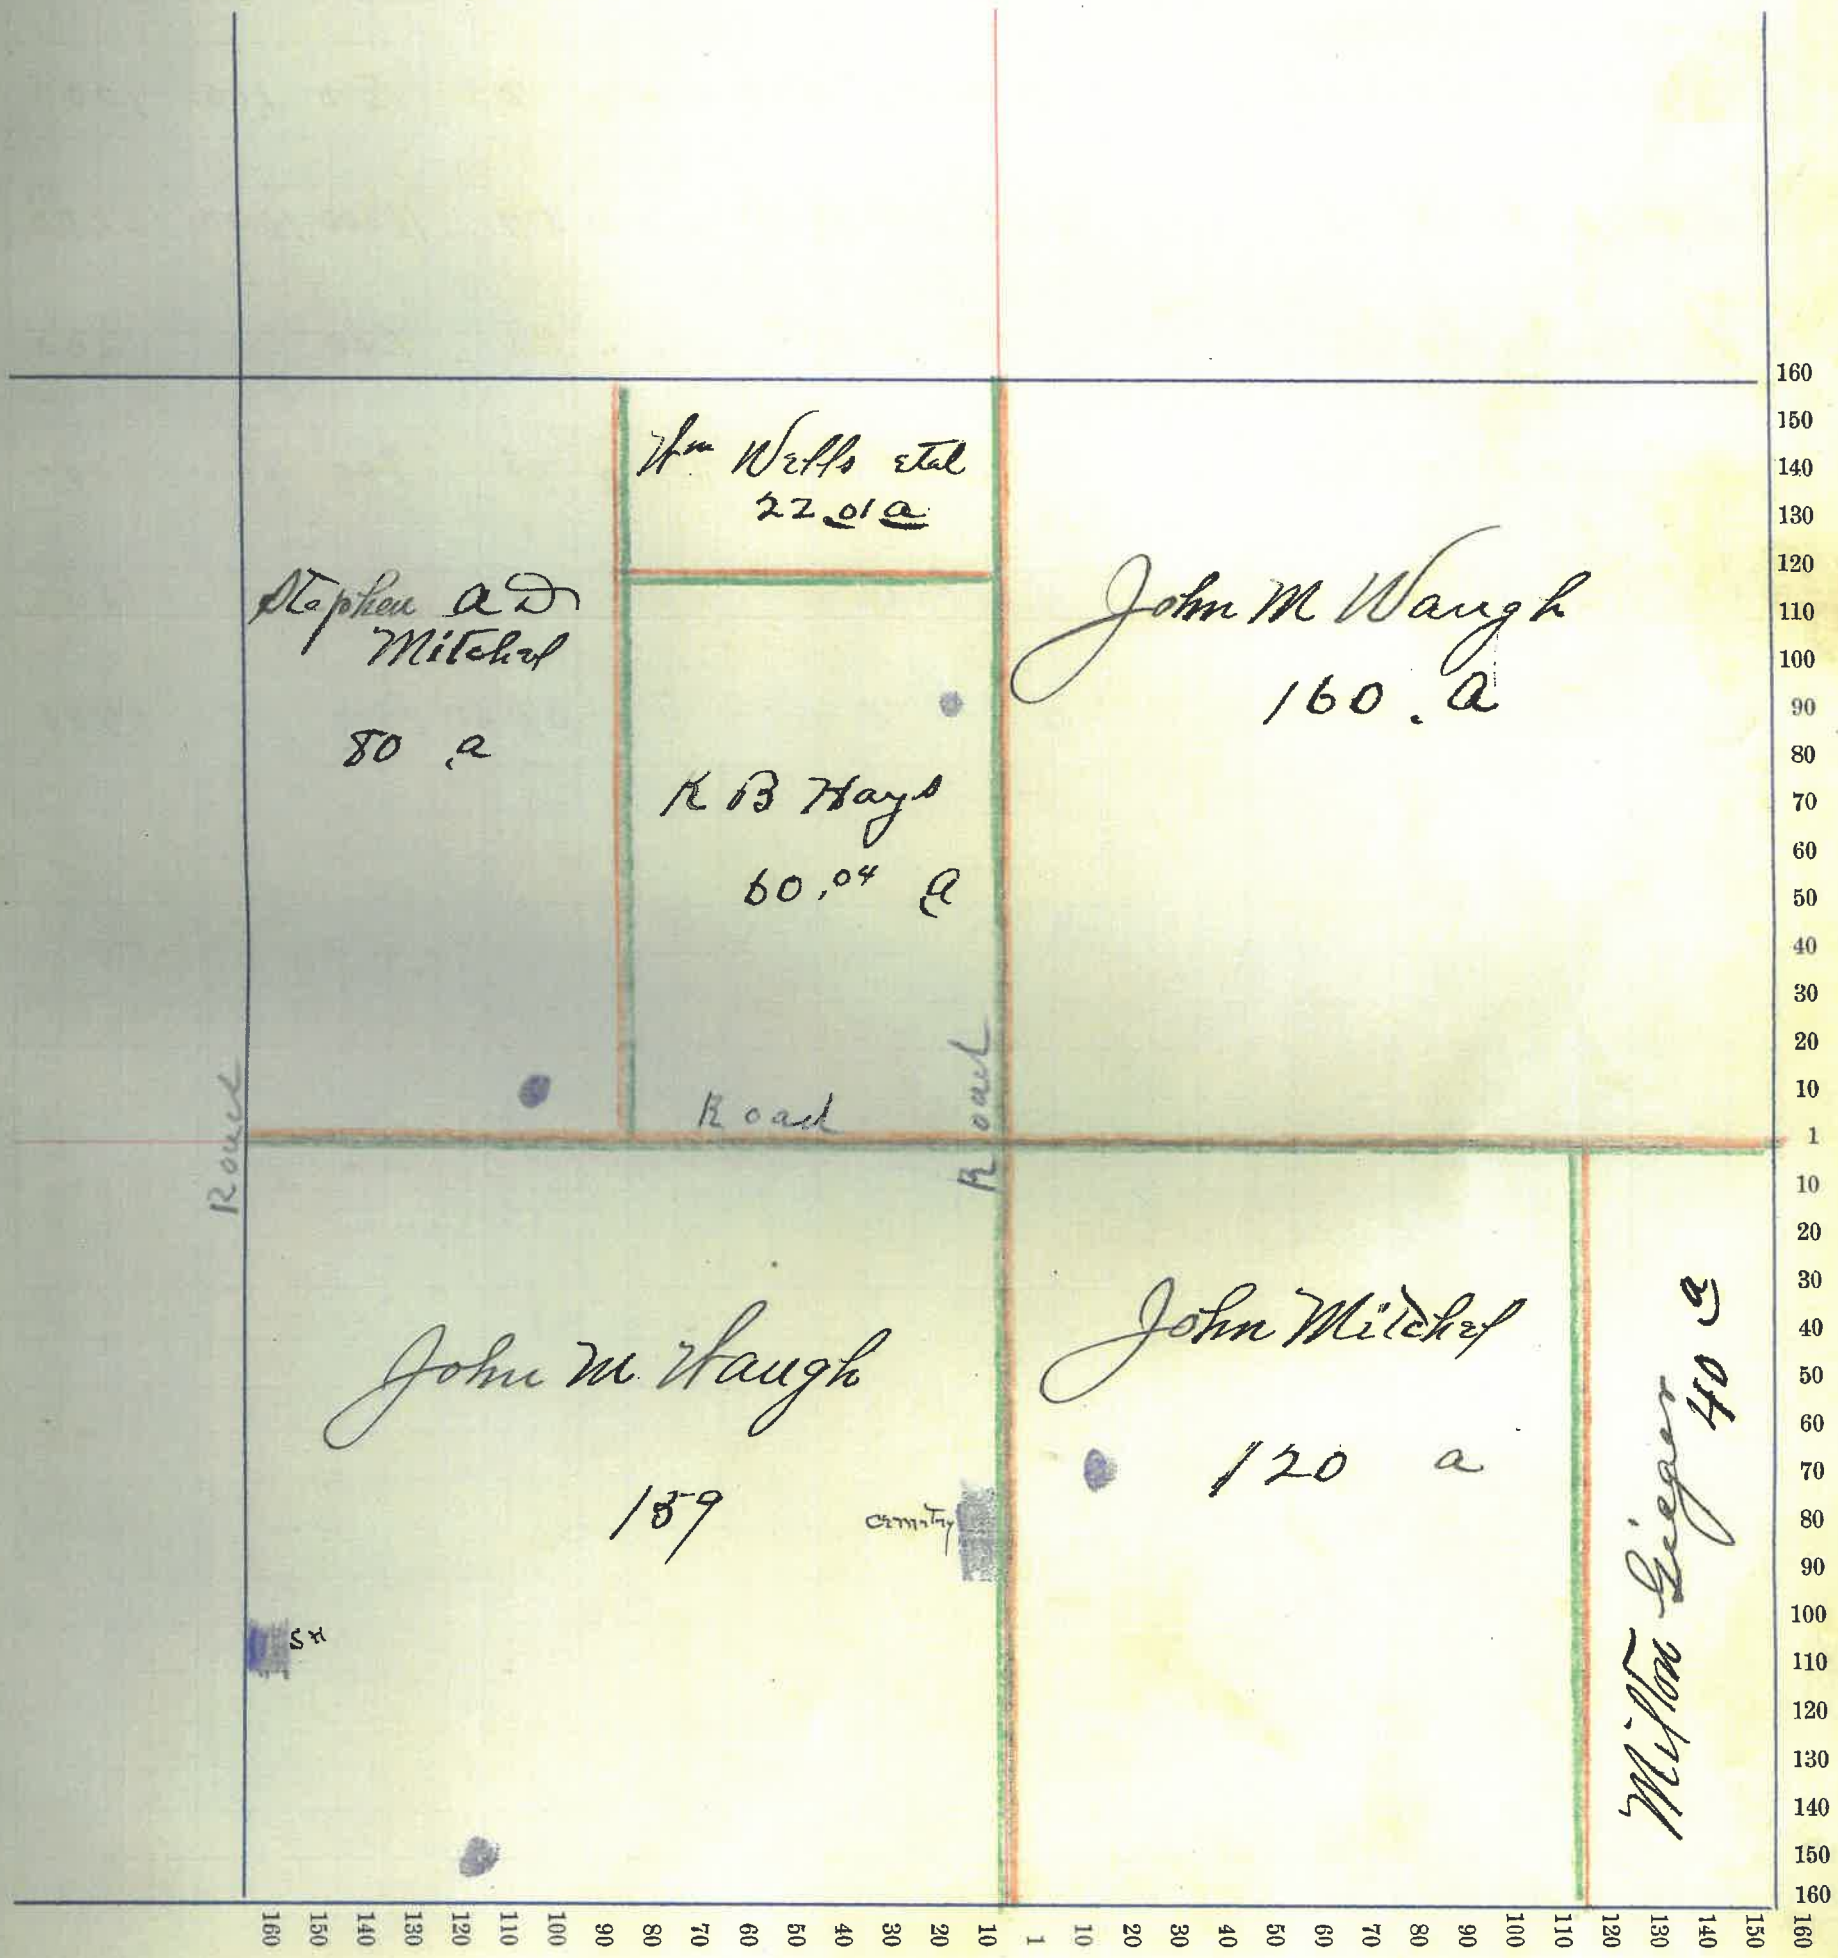 Wm Wells etal
22.01 a
Stephen A D
Mitchel
80 a
K B Hays
60.04 a
John M Waugh
160. a
Road
Road
Road
John M. Waugh
159
cemetry
SH
John Mitchel
120 a
Milton Gieger
40 a
160
150
140
130
120
110
100
90
80
70
60
50
40
30
20
10
1
10
20
30
40
50
60
70
80
90
100
110
120
130
140
150
160
160 150 140 130 120 110 100 90 80 70 60 50 40 30 20 10 1 10 20 30 40 50 60 70 80 90 100 110 120 130 140 150 160